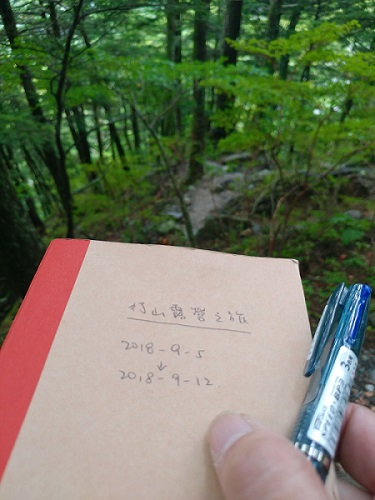 行山露營之旅
2018-9-5
↓
2018-9-12